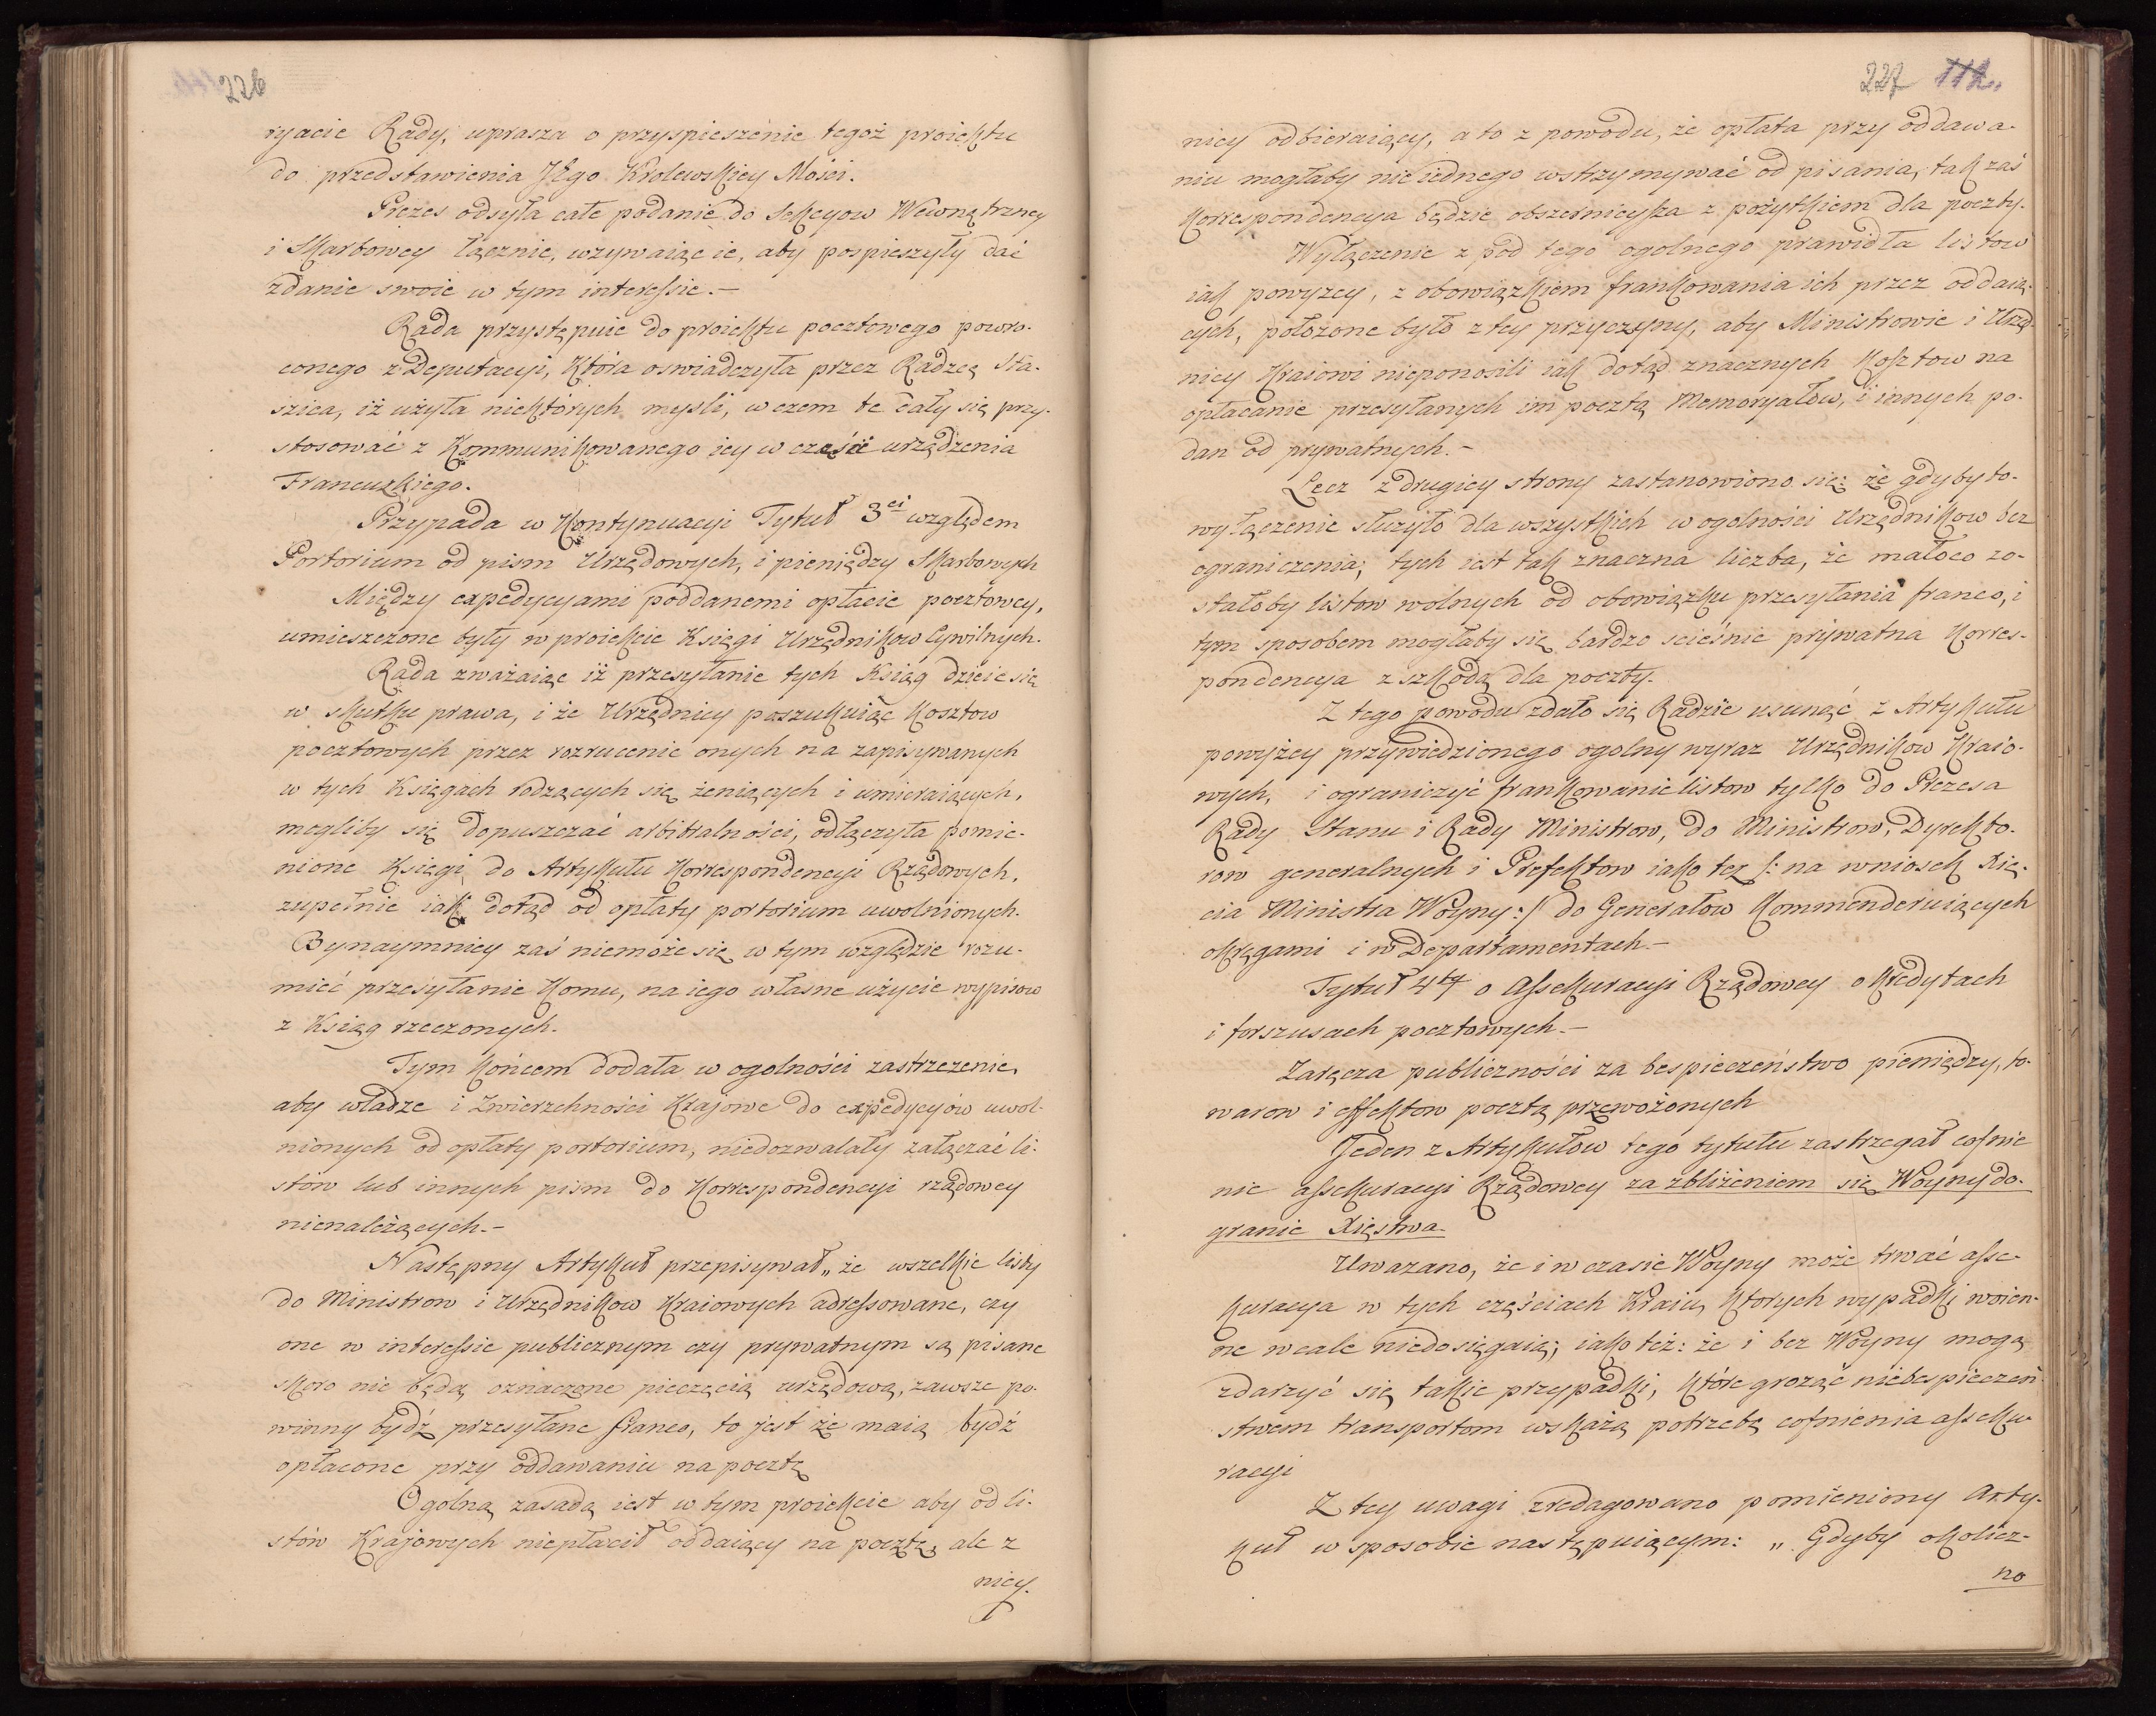 226
ryacie Rady, uprasza o przyspieszenie tegoż proiektu
do przedstawienia JEgo Krolewskiey Mości.
Prezes odsyła całe podanie do Sekcyow Wewnątrzney
i Skarbowey łącznie, wzywaiąc ie, aby pospieszyły dać
zdanie swoie w tym interessie.—
Rada przystępuie do proiektu pocztowego powro-
conego z Deputacyi, Która oswiadczyła przez Radzcę Sta-
szica, iż użyła niektórych mysli, w czem te dały się przy-
stosować z Kommunikowanego iey w czasie urządzenia
Francuzkiego.
Przypada w Kontynuacyi Tytuł 3ci względem
Portorium od pism Urzędowych, i pieniędzy Skarbowych
Między expedycyami poddanemi opłacie pocztowey,
umieszczone były w proiekcie Księgi Urzędnikow Cywilnych.
Rada zważaiąc iż przesyłanie tych Ksiąg dzieie się
w skutku prawa, i że Urzędnicy poszukuiąc Kosztow
pocztowych przez rozrucenie onych na zapisywanych
w tych Księgach rodzących się żeniących i umieraiących,
mogliby się dopuszczać arbitralności, odłączyła pomie-
nione Księgi do Artykułu Korrespondencyi Rządowych,
zupełnie iak dotąd od opłaty portorium uwolnionych.
Bynaymniey zaś niemoże się w tym względzie rozu-
mieć przesyłanie Komu, na iego własne użycie wypisow
z Ksiąg rzeczonych.
Tym Końcem dodała w ogolności zastrzezenie,
aby władze i Zwierzchności Krajowe do expedycyów uwol-
nionych od opłaty portorium, niedozwalały załączać li-
stów lub innych pism do Korrespondencyi rządowey
nienależących.—
Następny Artykuł przepisywał „że wszelkie listy
do Ministrow i Urzędnikow Kraiowych adressowane, czy
one w interessie publicznym czy prywatnym są pisane
skoro nie będą oznaczone pieczęcią urzędową, zawsze po-
winny bydź przesyłane franco, to jest że maią bydź
opłacone przy oddawaniu na pocztę
Ogolną zasadą iest w tym proiekcie aby od li-
stów Krajowych niepłacił oddaiący na pocztę, ale z
nicy.
227 112.
nicy odbieraiący, a to z powodu, że opłata przy oddawa-
niu mogłaby nieiednego wstrzymywać od pisania, tak zaś
Korrespondencya będzie obszernieysza z pożytkiem dla poczty.
Wyłączenie z pod tego ogolnego prawidła listow
iak powyżey, z obowiązkiem frankowania ich przez oddaią-
cych, położone było z tey przyczyny, aby Ministrowie i Urzę-
nicy Kraiowi nieponosili iak dotąd znacznych Kosztow na
opłacanie przesyłanych im pocztą Memoryałów, i innych po-
dan od prywatnych.—
Lecz z drugiey strony zastanowiono się: że gdyby to-
wyłączenie służyło dla wszystkich w ogolności Urzędnikow bez
ograniczenia, tych iest tak znaczna liczba, że małoco zo-
stałoby listow wolnych od obowiązku przesyłania franco, i
tym sposobem mogłaby się bardzo scieśnic prywatna Korres-
pondencya z szkodą dla poczty.
Z tego powodu zdało się Radzie usunąć z Artykułu
powyżey przywiedzionego ogolny wyraz Urzędnikow Kraio-
wych, i ograniczyć frankowanie listow tylko do Prezesa
Rady Stanu i Rady Ministrow, do Ministrow, Dyrekto-
row generalnych i Prefektow iako tez /: na wniosek Xię-
cia Ministra Woyny :/ do Generałow Kommenderuiących
okręgami i w Departamentach.—
Tytuł 4ty o Assekuracyi Rządowey o Kredytach
i forszusach pocztowych.—
Zaręcza publiczności za bespieczeństwo pieniędzy, to-
warow i effektow pocztą przewożonych
Jeden z Artykułow tego tytułu zastrzegał cofnie
nie assekuracyi Rządowey za zbliżeniem się Woyny do-
granic Xięstwa.
Uwazano, że i w czasie Woyny może trwać asse-
kuracya w tych częściach Kraiu, Ktorych wypadki woien-
ne wcale niedosięgaią; iako też: że i bez Woyny mogą
zdarzyć się takie przypadki, które grożąc niebespieczeń-
stwem transportom wskażą potrzebę cofnienia asseku-
racyi
Z tey uwagi zredagowano pomieniony Arty-
kuł w sposobie następuiącym: „Gdyby okolicz-
no